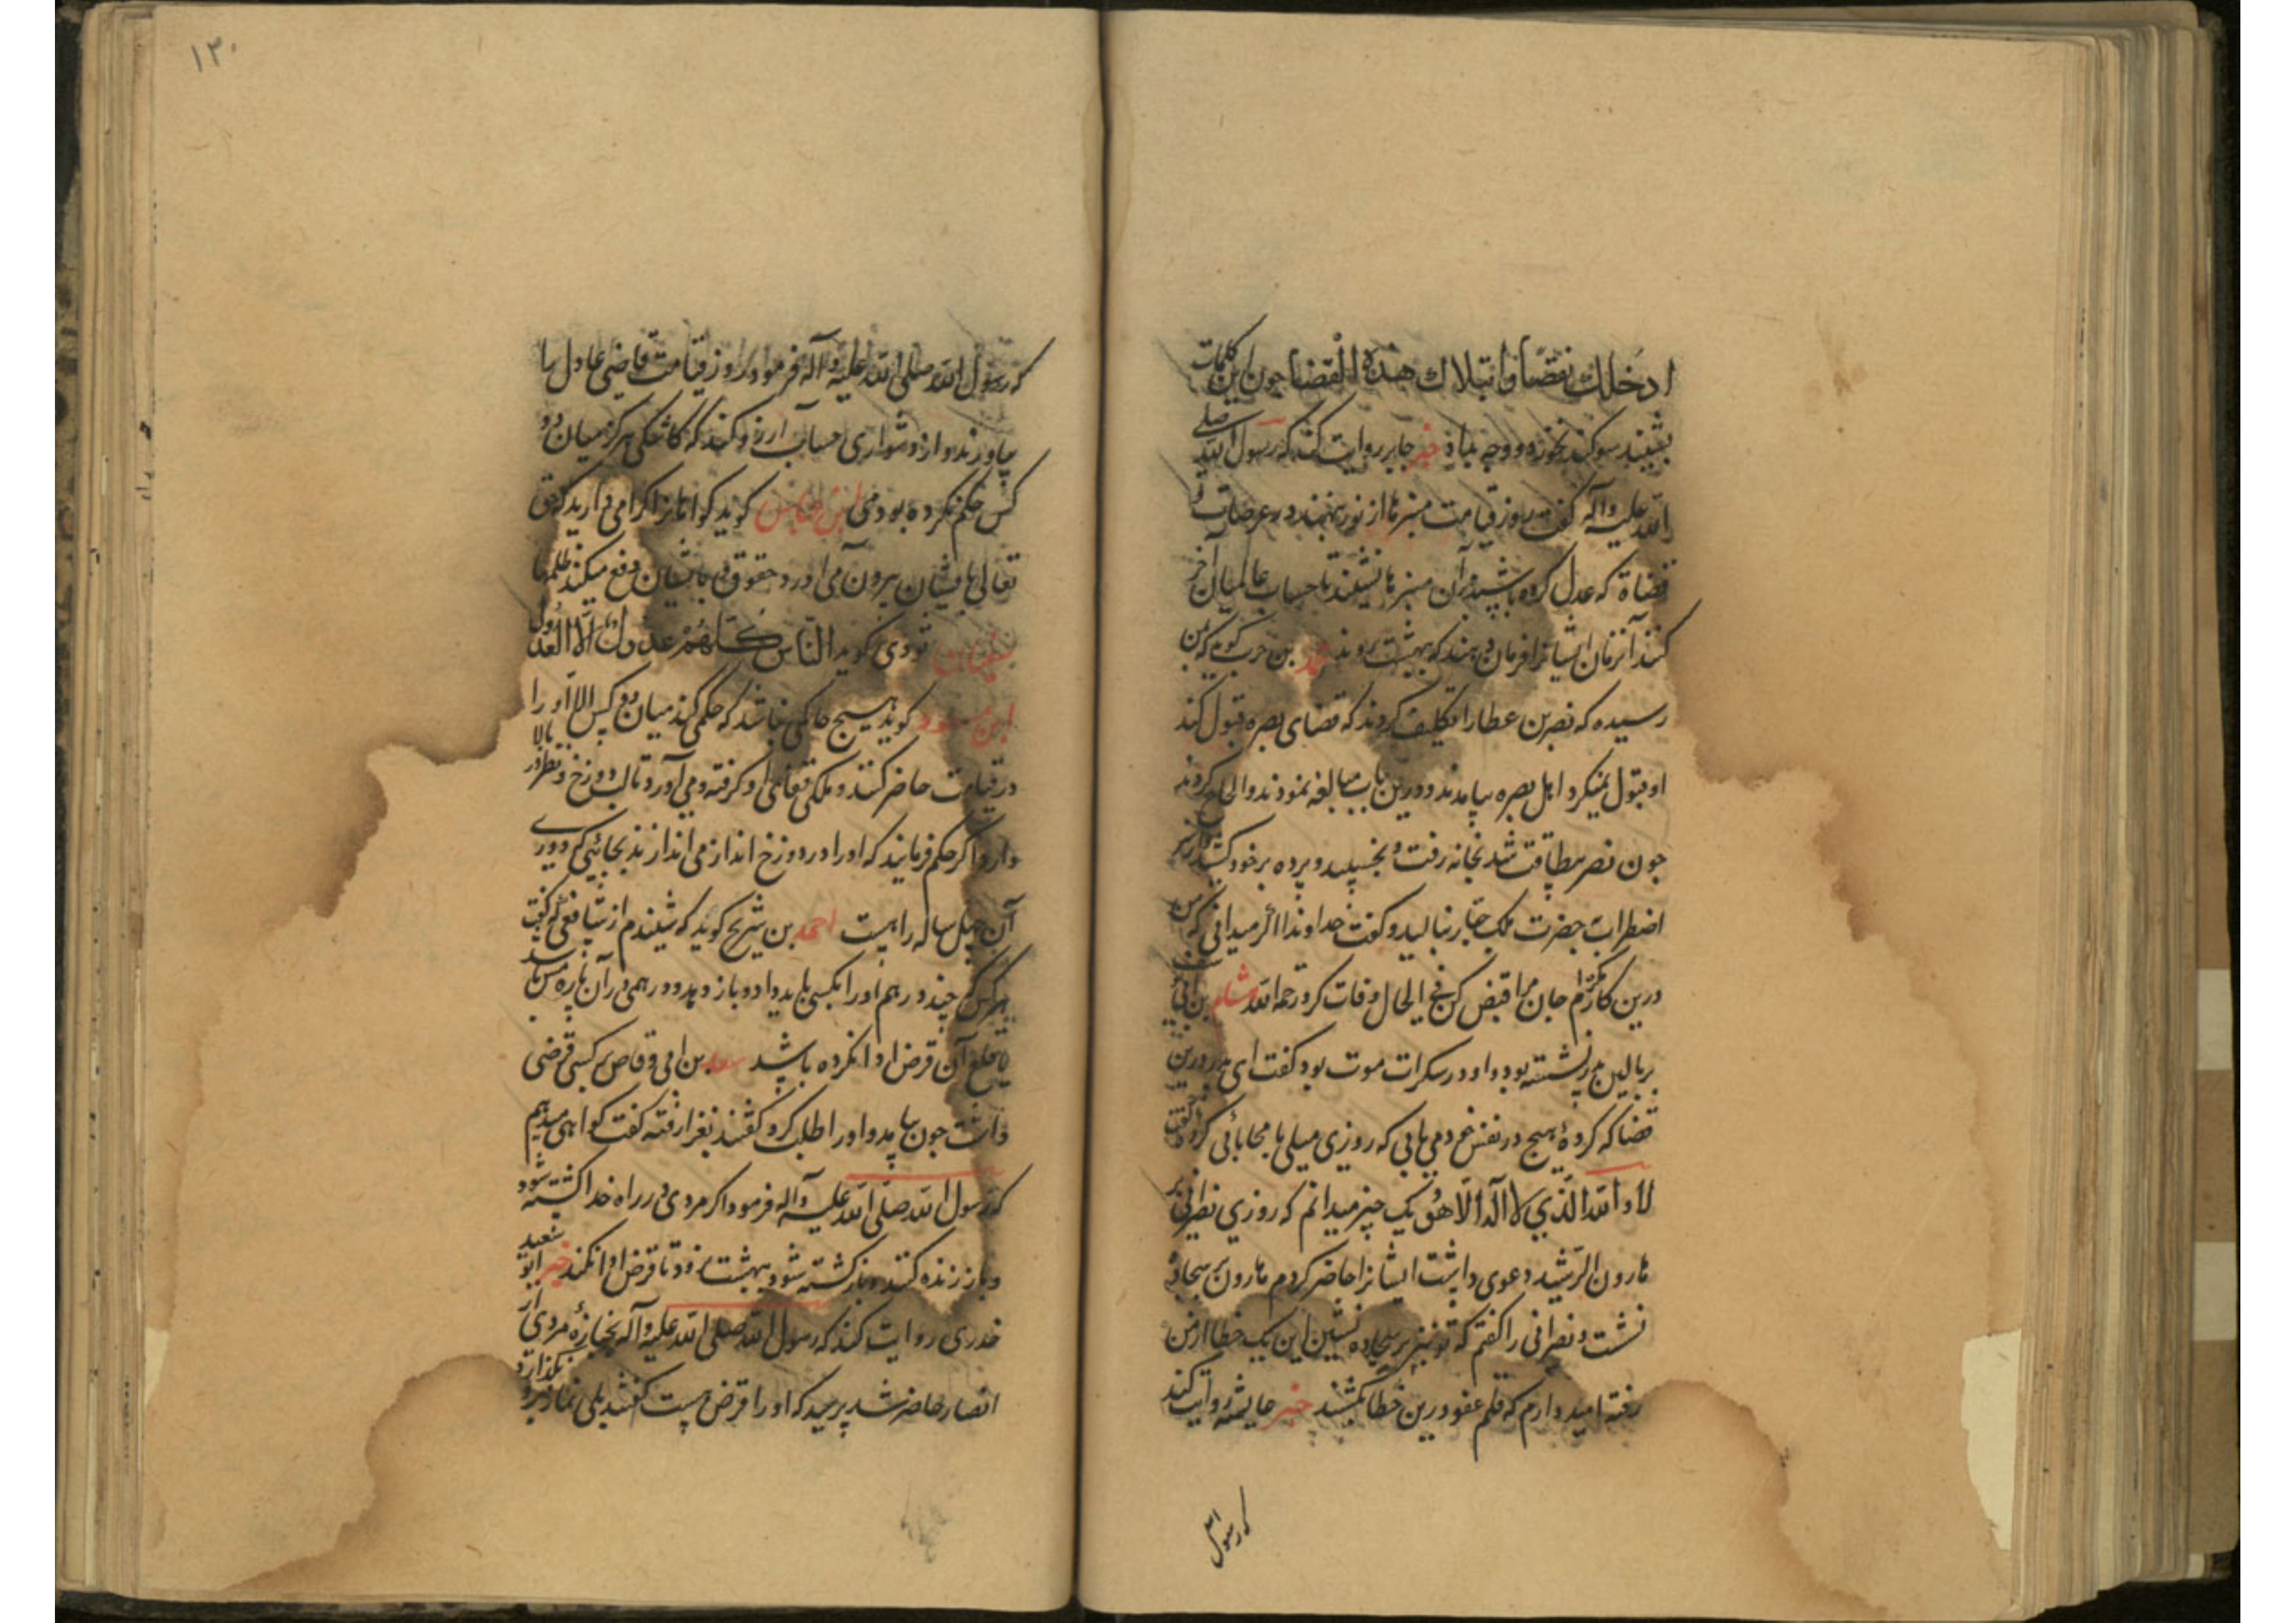 ادخلك نقضا وابتلاك هذه القضا جون این کلمات
بشنیند سوکند بخورد و وجه بداد خبر جابر روایت کند که رسول الله صلی
الله علیه وآله کفت روز قیامت منبرها از نور بنهند در عرصات
قضاة که عدل کرده باشند بر آن منبرها نشینند تا حساب عالمیان آخر
کنند آنزمان ایشانرا فرمان دهند که ببهشت روند محمد بن حرب کوید که بمن
رسیده که نصر بن عطار را تکلیف کردند که قضای بصره قبول کند
او قبول نمیکرد اهل بصره بیامدند و درین باب مبالغه نمودند و الحاح کردند
جون نصر بیطاقت شد بخانه رفت و بخسپید و پرده بر خود کشید و از سر
اضطراب بحضرت ملک جبار بنالید و کفت خداوندا اکر میدانی که من
درین کار مکرهم جان مرا قبض کن فی الحال وفات کرد رحمه الله بن ابی
ببالین پدر نشسته بود و او در سکرات موت بود کفت ای پدر درین
قضا که کردهٔ هیج در نفس خود می یابی که روزی میلی یا محابائی کردهٔ کفت
لا والله الذي لا اله الا هو یک چیز میدانم که روزي نصرانی بر
هارون الرشید دعوی داشت ایشانرا حاضر کردم هارون بر سجاده
نشست و نصرانی را کفتم که تو نیز بر سجاده نشین این یک خطا از من
رفته امیدوارم که قلم عفو درین خطا کشند خبر عایشه روایت کند
که رسول
۱۲۰
که رسول الله صلی الله علیه وآله فرمود که روز قیامت قاضی عادل را
بیاورند و از دشواری حساب آرزو کند که کاشکی هرکز میان دو
کس حکم نکرده بودمی ابن عباس کوید کواهانرا اکرامی دارید که حق
تعالی بایشان بیرون می آورد حقوق و بایشان دفع میکند ظلمها
سفیان ثوری کوید الناس كلهم عدول الا العدول
ابن مسعود کوید هیج حاکمی نباشد که حکمی کند میان دو کس الا او را
در قیامت حاضر کنند و ملکی قفای او کرفته و می آورد تا لب دوزخ و نظر در بالا
دارد اکر حکم فرمایند که او را در دوزخ انداز می اندازند بجائی که دوری
آن چهل ساله راهست احمد بن شریح کوید که شنیدم از شافعی که کفت
هرکس که چند درهم او را بکسی باید داد و باز دهد و درهمی در آن پاره مس باشد
یا قلع آن قرض ادا نکرده باشد سعد بن ابی وقاص بر کسی قرضی
داشت جون بیامد و او را طلب کرد کفتند بغزا رفته کفت کواهی میدهم
که رسول الله صلی الله علیه وآله فرمود اکر مردی در راه خدا کشته شود
و باز زنده کنند و باز کشته شود ببهشت نرود تا قرض ادا نکند خبر ابو سعید
خدری روایت کند که رسول الله صلی الله علیه وآله بجنازهٔ مردی از
انصار حاضر شد پرسید که او را قرض هست کفتند بلی نماز برو نکذارد